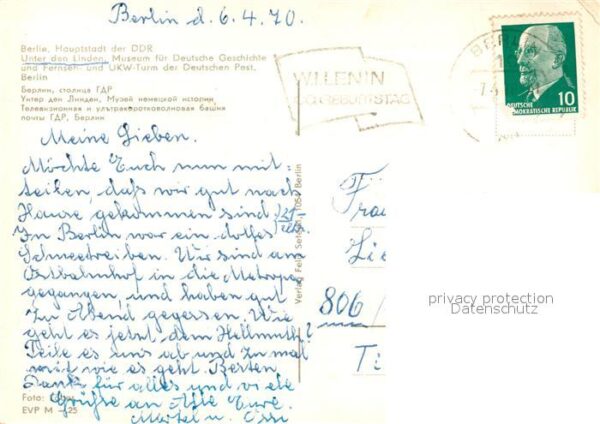 Berlin d. 6.4.70.
Berlin, Hauptstadt der DDR
Unter den Linden, Museum für Deutsche Geschichte
und Fernseh- und UKW-Turm der Deutschen Post,
Berlin
Берлин, столица ГДР
Унтер ден Линден, Музей немецкой истории
Телевизионная и ультракоротковолновая башня
почты ГДР, Берлин
W.I. LENIN
GEBURTSTAG
DEUTSCHE
DEMOKRATISCHE REPUBLIK
10
Meine Lieben.
Möchte Euch nun mit-
teilen, daß wir gut nach
Hause gekommen sind
In Berlin war ein dolles
Schneetreiben. Wir sind am
Ostbahnhof in die Metropa
gegangen, und haben gut
zu Abend gegessen. Wie
geht es jetzt dem Hellmuth?
Teile es uns ab und zu mal
mit wie es geht. Besten
Dank für alles und viele
Grüße an Alle Eure
Foto:
EVP M -,25
Verlag Felix Setecki, 1054 Berlin
Frau
Lie
806
privacy protection
Datenschutz